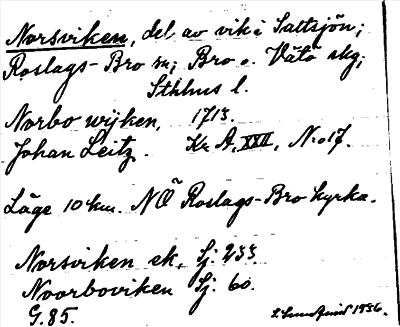 Norsviken, del av vik i Saltsjön;
Roslags-Bro sn; Bro o. Vätö skg;
Sthlms l.
Norbo wijken, 1713.
Johan Leitz. Kr A, XXII, No 17.
Läge 10 km. NÖ Roslags-Bro kyrka.
Norsviken ek. Sj. 233.
Noorboviken Sj. 60.
G. 85.
1936.